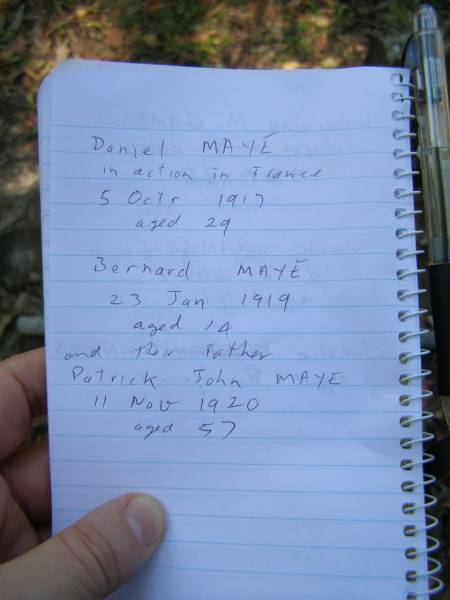 Daniel MAYÉ
in action in France
5 Octr 1917
aged 29
Bernard MAYÉ
23 Jan 1919
aged 14
and their Father
Patrick John MAYE
11 Nov 1920
aged 57